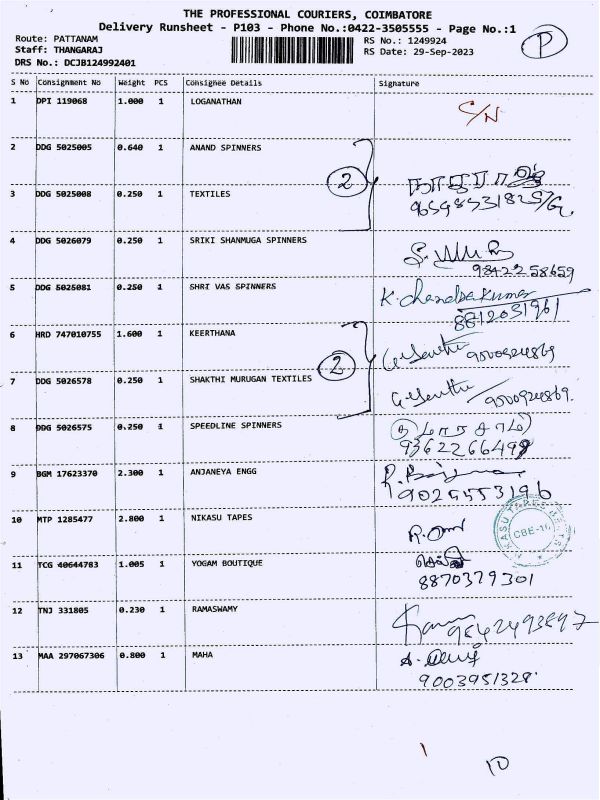 THE PROFESSIONAL COURIERS, COIMBATORE
Delivery Runsheet - P103 - Phone No.:0422-3505555 - Page No.:1
Route: PATTANAM RS No.: 1249924
Staff: THANGARAJ RS Date: 29-Sep-2023
DRS No.: DCJB124992401
P
S No Consignment No Weight PCS Consignee Details Signature
1 DPI 119068 1.000 1 LOGANATHAN S/N
2 DDG 5025005 0.640 1 ANAND SPINNERS
2
3 DDG 5025008 0.250 1 TEXTILES
4 DDG 5026079 0.250 1 SRIKI SHANMUGA SPINNERS
9842258659
5 DDG 5025081 0.250 1 SHRI VAS SPINNERS K. chandra kumar
8812031961
6 HRD 747010755 1.600 1 KEERTHANA
2
7 DDG 5026578 0.250 1 SHAKTHI MURUGAN TEXTILES
8 DDG 5026575 0.250 1 SPEEDLINE SPINNERS
9362266498
9 BGM 17623370 2.300 1 ANJANEYA ENGG
9025553196
10 MTP 1285477 2.800 1 NIKASU TAPES
CBE-16
11 TCG 40644783 1.005 1 YOGAM BOUTIQUE
8870379301
12 TNJ 331805 0.230 1 RAMASWAMY
9842493897
13 MAA 297067306 0.800 1 MAHA
9003951328
10